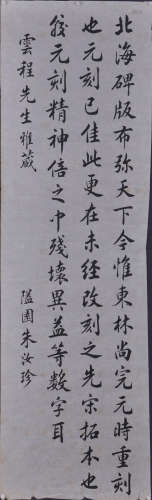 北海碑版布弥天下今惟東林尚完元時重刻
也元刻已佳此更在未經改刻之先宋拓本也
錢元刻精神倍之中殘壞異益等數字耳
雲程先生雅藏
隘園朱汝珍